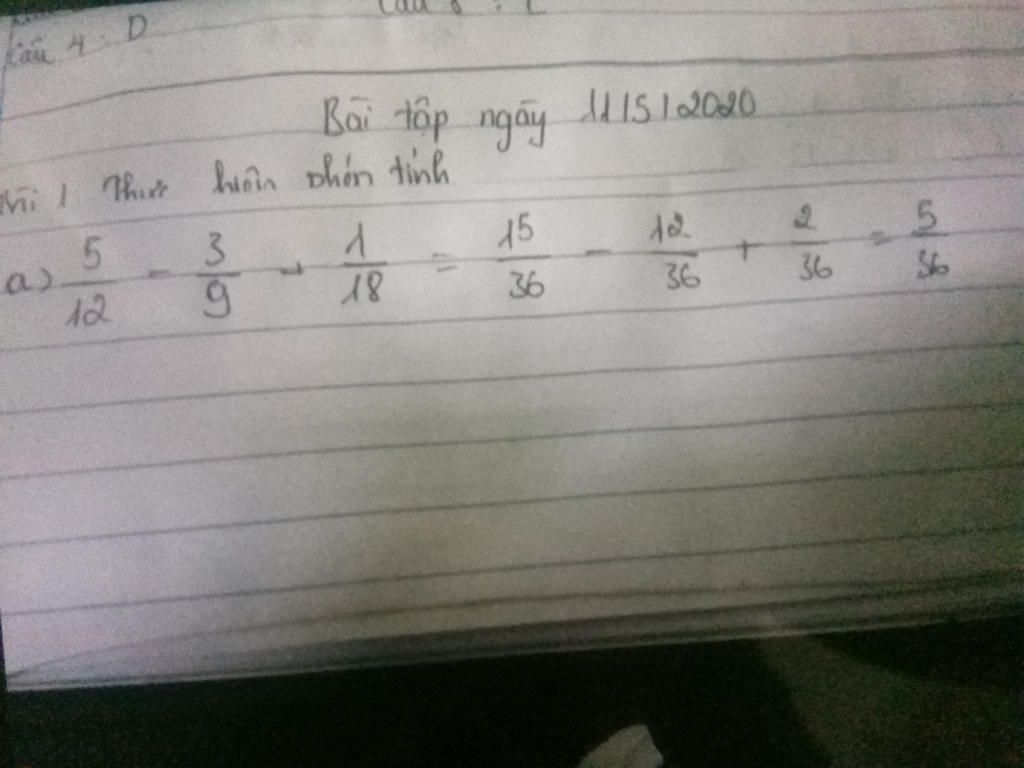 Câu 4: D
Bài tập ngày 11/5/2020
Bài 1 Thực hiện phép tính
a) 5/12 - 3/9 + 1/18 = 15/36 - 12/36 + 2/36 = 5/36